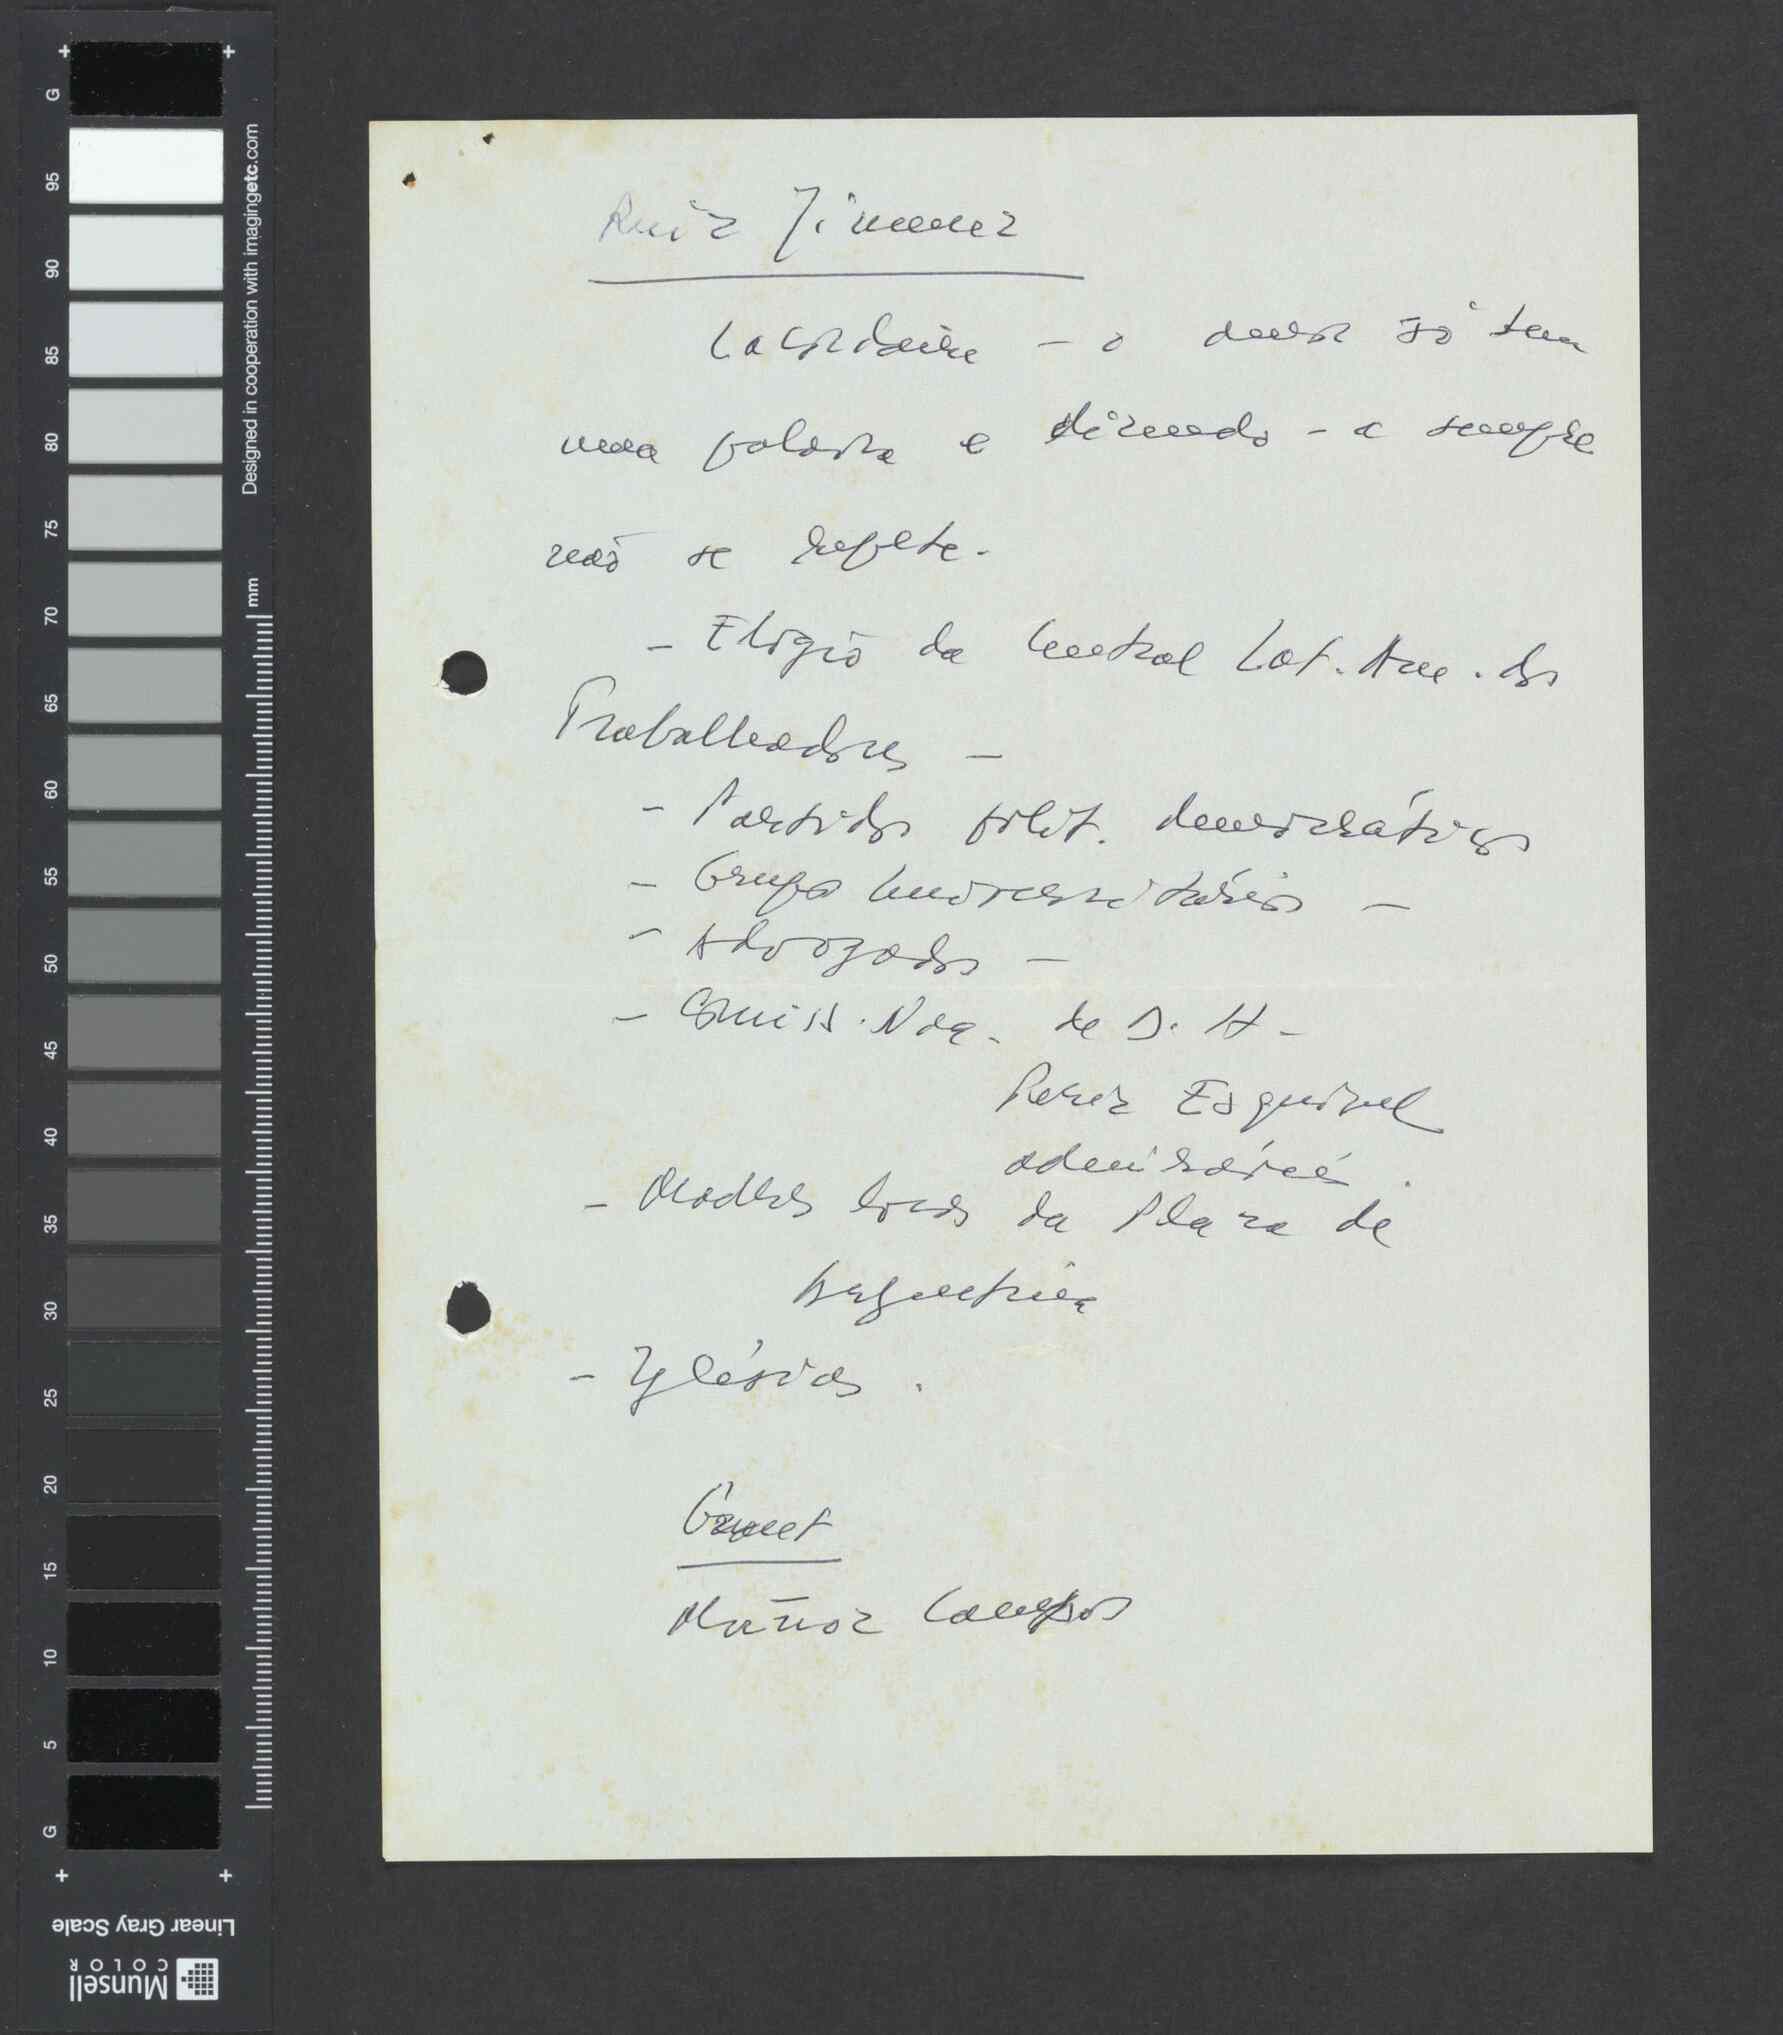 Ruiz Jimenez
Lacordaire - o amor só tem
uma palavra e dizendo-a sempre
não se repete.
- Elogio da Central Lat. Am. dos
Trabalhadores -
- Partidos polit. democráticos
- Grupos Universitários -
- Advogados -
- Comiss. Nac. de D. H -
Perez Esquivel
- Madres locas da Plaza de
Argentina
- Yglésias.
Muñoz Campos
G
95
90
85
80
75
70
65
60
55
50
45
40
35
30
25
20
15
10
5
G
mm
Designed in cooperation with imagingetc.com
Linear Gray Scale
Munsell
COLOR